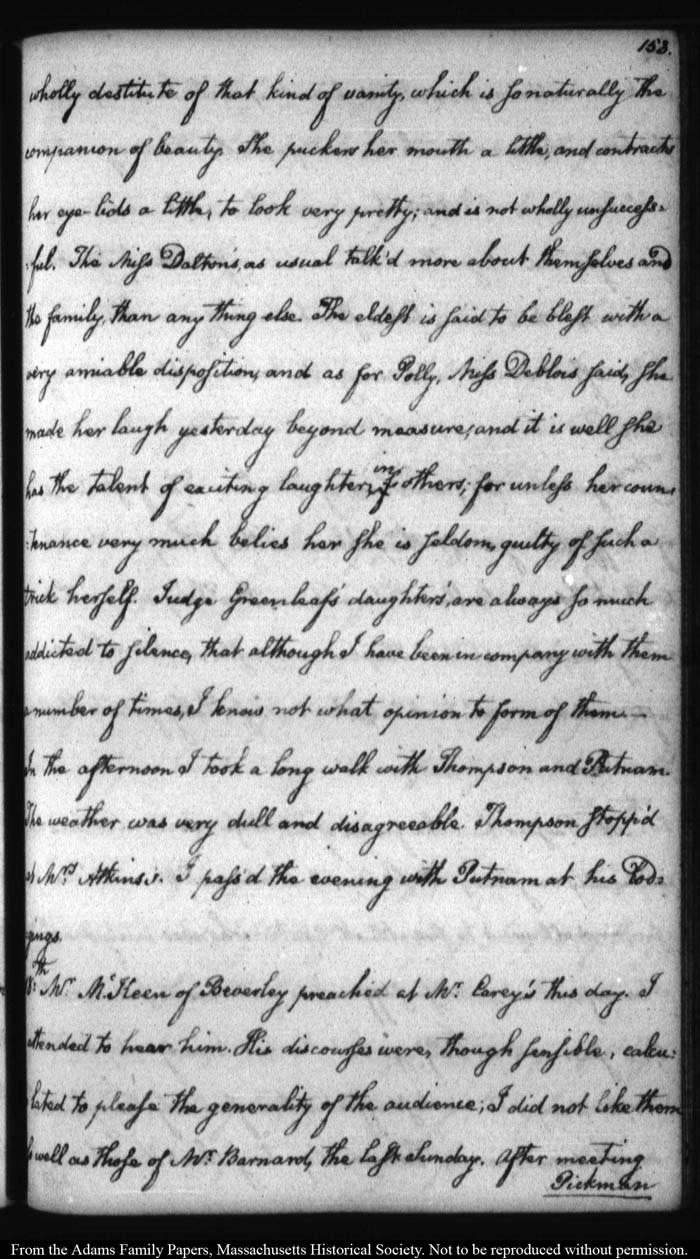 153.
wholly destitute of that kind of vanity, which is so naturally the
companion of beauty. She puckers her mouth a little, and contracts
her eye-lids a little, to look very pretty; and is not wholly unsuccess=
=ful. The Miss Dalton's, as usual talk'd more about themselves and
the family, than any thing else. The eldest is said to be blest with a
very amiable disposition, and as for Polly, Miss Deblois said, she
made her laugh yesterday beyond measure, and it is well she
has the talent of exciting laughter, in others; for unless her coun=
=tenance very much belies her she is seldom, guilty of such a
trick herself. Judge Greenleaf's daughters, are always so much
addicted to silence, that although I have been in company with them
a number of times, I know not what opinion to form of them.—
In the afternoon I took a long walk with Thompson and Putnam.
The weather was very dull and disagreeable. Thompson stopp'd
at Mrs. Atkins's. I pass'd the evening with Putnam at his Lod=
gings.
18:th Mr. McKeen of Beverley preached at Mr. Carey's this day. I
attended to hear him. His discourses were, though sensible, calcu=
lated to please the generality of the audience; I did not like them
so well as those of Mr. Barnard, the last Sunday. After meeting
Pickman
From the Adams Family Papers, Massachusetts Historical Society. Not to be reproduced without permission